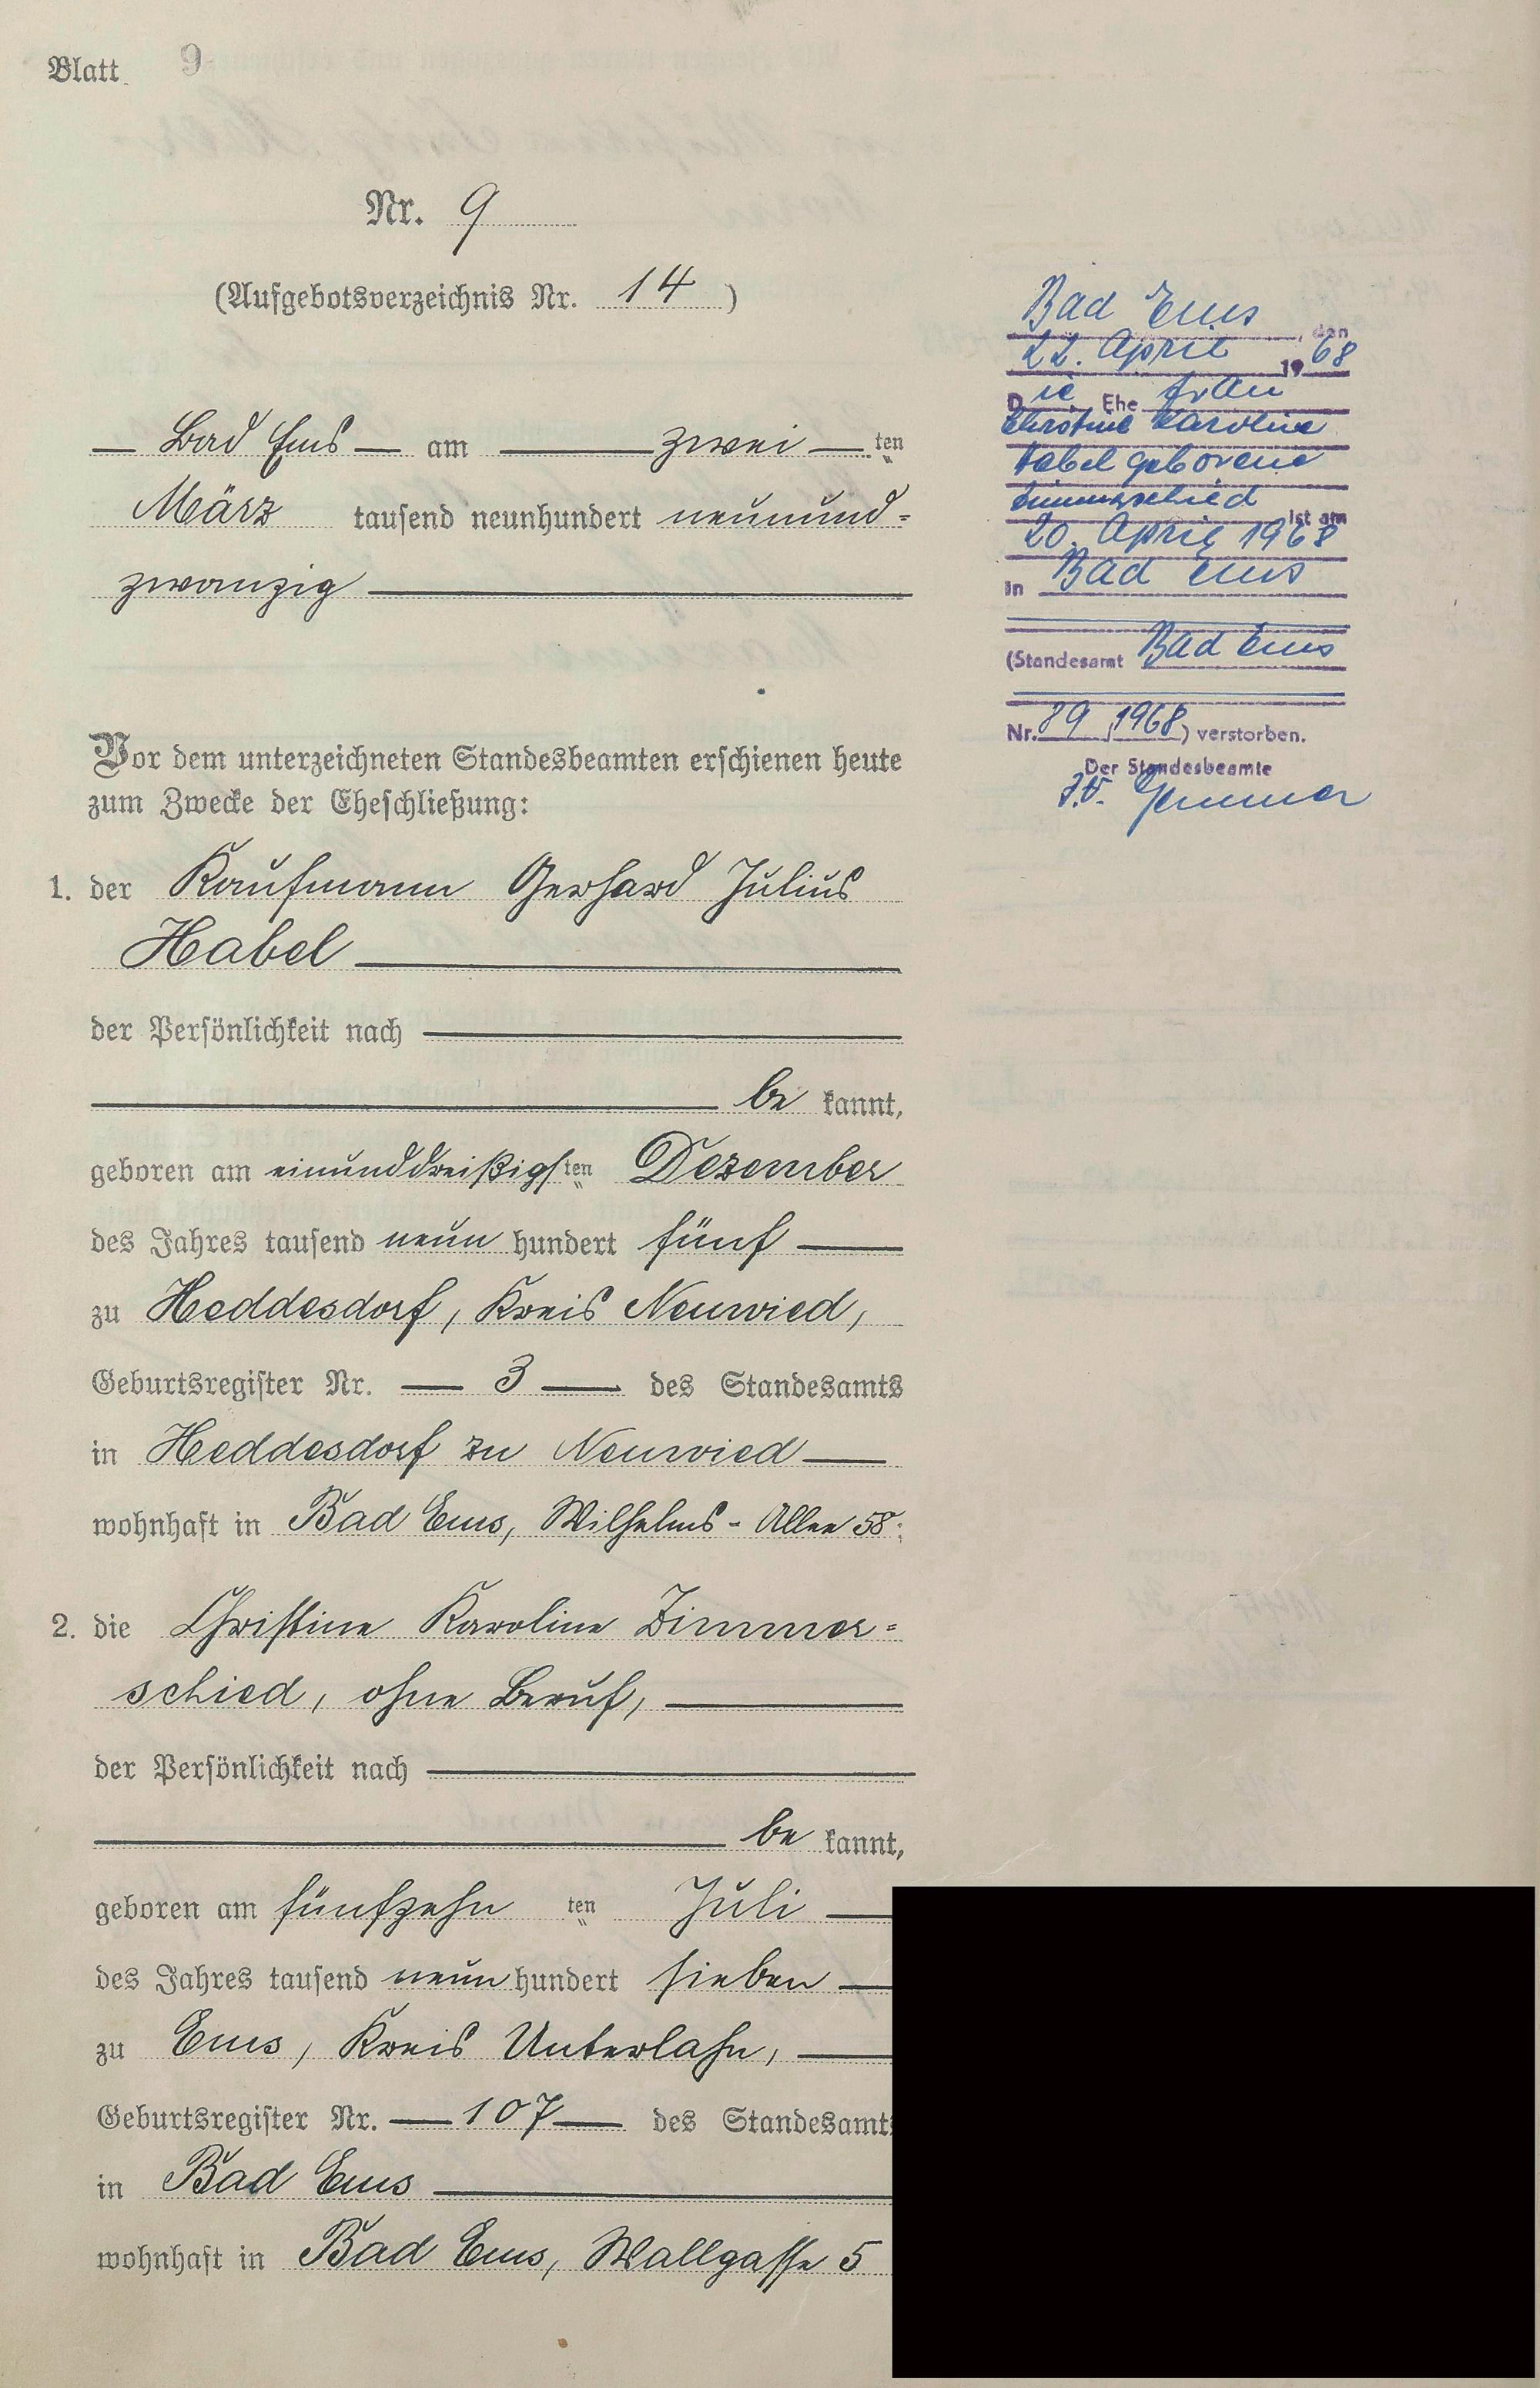 Blatt 9
Nr. 9
(Aufgebotsverzeichnis Nr. 14)
Bad Ems am zwei ten
März tausend neunhundert neunund-
zwanzig
Vor dem unterzeichneten Standesbeamten erschienen heute
zum Zwecke der Eheschließung:
1. der Kaufmann Gerhard Julius
Habel
der Persönlichkeit nach
be kannt,
geboren am einunddreißigsten Dezember
des Jahres tausend neun hundert fünf
zu Heddesdorf, Kreis Neuwied,
Geburtsregister Nr. 3 des Standesamts
in Heddesdorf zu Neuwied
wohnhaft in Bad Ems, Wilhelms-Allee 58.
2. die Christine Karoline Zimmer-
schied, ohne Beruf,
der Persönlichkeit nach
be kannt,
geboren am fünfzehn ten Juli
des Jahres tausend neun hundert sieben
zu Ems, Kreis Unterlahn,
Geburtsregister Nr. 107 des Standesamts
in Bad Ems
wohnhaft in Bad Ems, Wallgasse 5
Bad Ems, den
22. April 1968
Die Ehefrau
Christine Karoline
Habel geborene
Zimmerschied ist am
20. April 1968
in Bad Ems
(Standesamt Bad Ems
Nr. 89/1968) verstorben.
Der Standesbeamte
I.V.